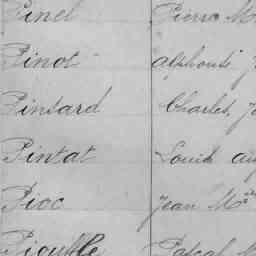 Pinel Pierre M
Pinot alphonse J
Pinsard Charles, J
Pintat Louis au
Pioc Jean M
Pascal